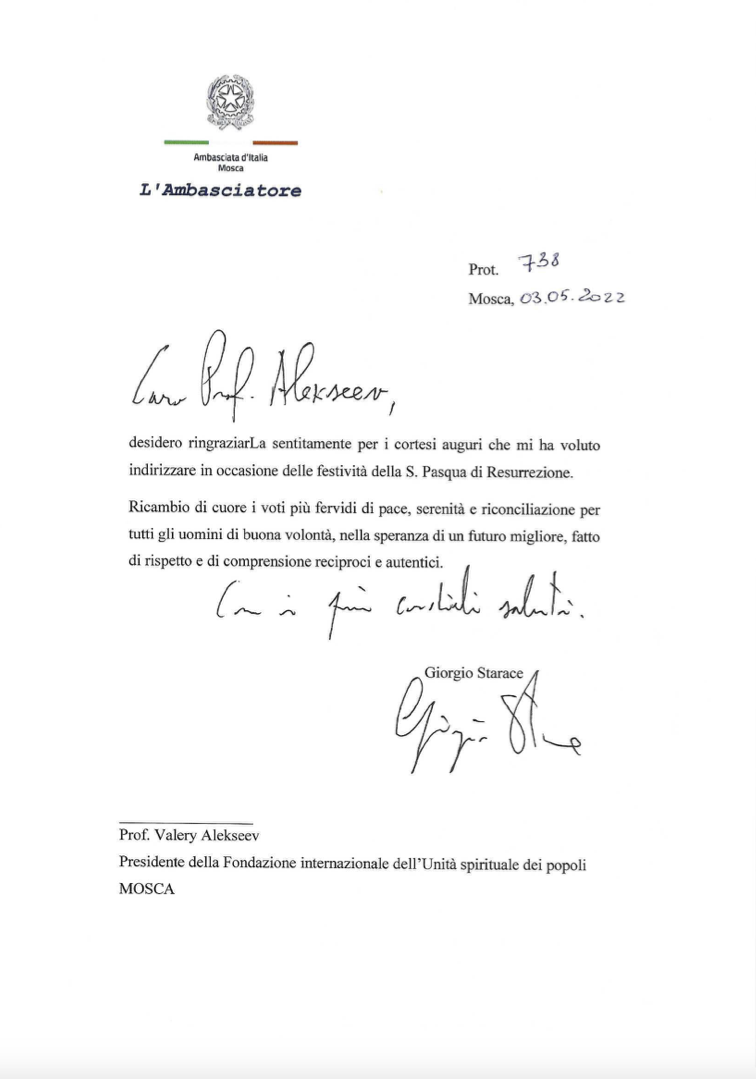 Ambasciata d'Italia
Mosca
L'Ambasciatore
Prot. 738
Mosca, 03.05.2022
Caro Prof. Alekseev,
desidero ringraziarLa sentitamente per i cortesi auguri che mi ha voluto
indirizzare in occasione delle festività della S. Pasqua di Resurrezione.
Ricambio di cuore i voti più fervidi di pace, serenità e riconciliazione per
tutti gli uomini di buona volontà, nella speranza di un futuro migliore, fatto
di rispetto e di comprensione reciproci e autentici.
Con i più cordiali saluti.
Giorgio Starace
Giorgio Starace
Prof. Valery Alekseev
Presidente della Fondazione internazionale dell'Unità spirituale dei popoli
MOSCA